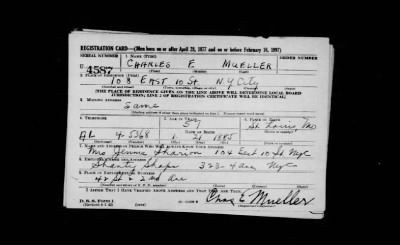 REGISTRATION CARD—(Men born on or after April 28, 1877 and on or before February 16, 1897)
SERIAL NUMBER 1. NAME (Print) ORDER NUMBER
U 4587 CHARLES E. MUELLER
(First) (Middle) (Last)
2. PLACE OF RESIDENCE (Print)
108 EAST 10 St. N.Y. City
(THE PLACE OF RESIDENCE GIVEN ON THE LINE ABOVE WILL DETERMINE LOCAL BOARD
JURISDICTION; LINE 2 OF REGISTRATION CERTIFICATE WILL BE IDENTICAL)
3. MAILING ADDRESS
Same
4. TELEPHONE 5. AGE IN YEARS 6. PLACE OF BIRTH
57 St. Louis Mo
DATE OF BIRTH
4-5368 1 21 1885
7. NAME AND ADDRESS OF PERSON WHO WILL ALWAYS KNOW YOUR ADDRESS
Mrs Jennie 104 East 10 St NYC
8. EMPLOYER'S NAME AND ADDRESS
323-4 Ave NYC
9. PLACE OF EMPLOYMENT OR BUSINESS
42 St & 2nd Ave
I AFFIRM THAT I HAVE VERIFIED ABOVE ANSWERS AND THAT THEY ARE TRUE.
D. S. S. Form 1 Chas E Mueller